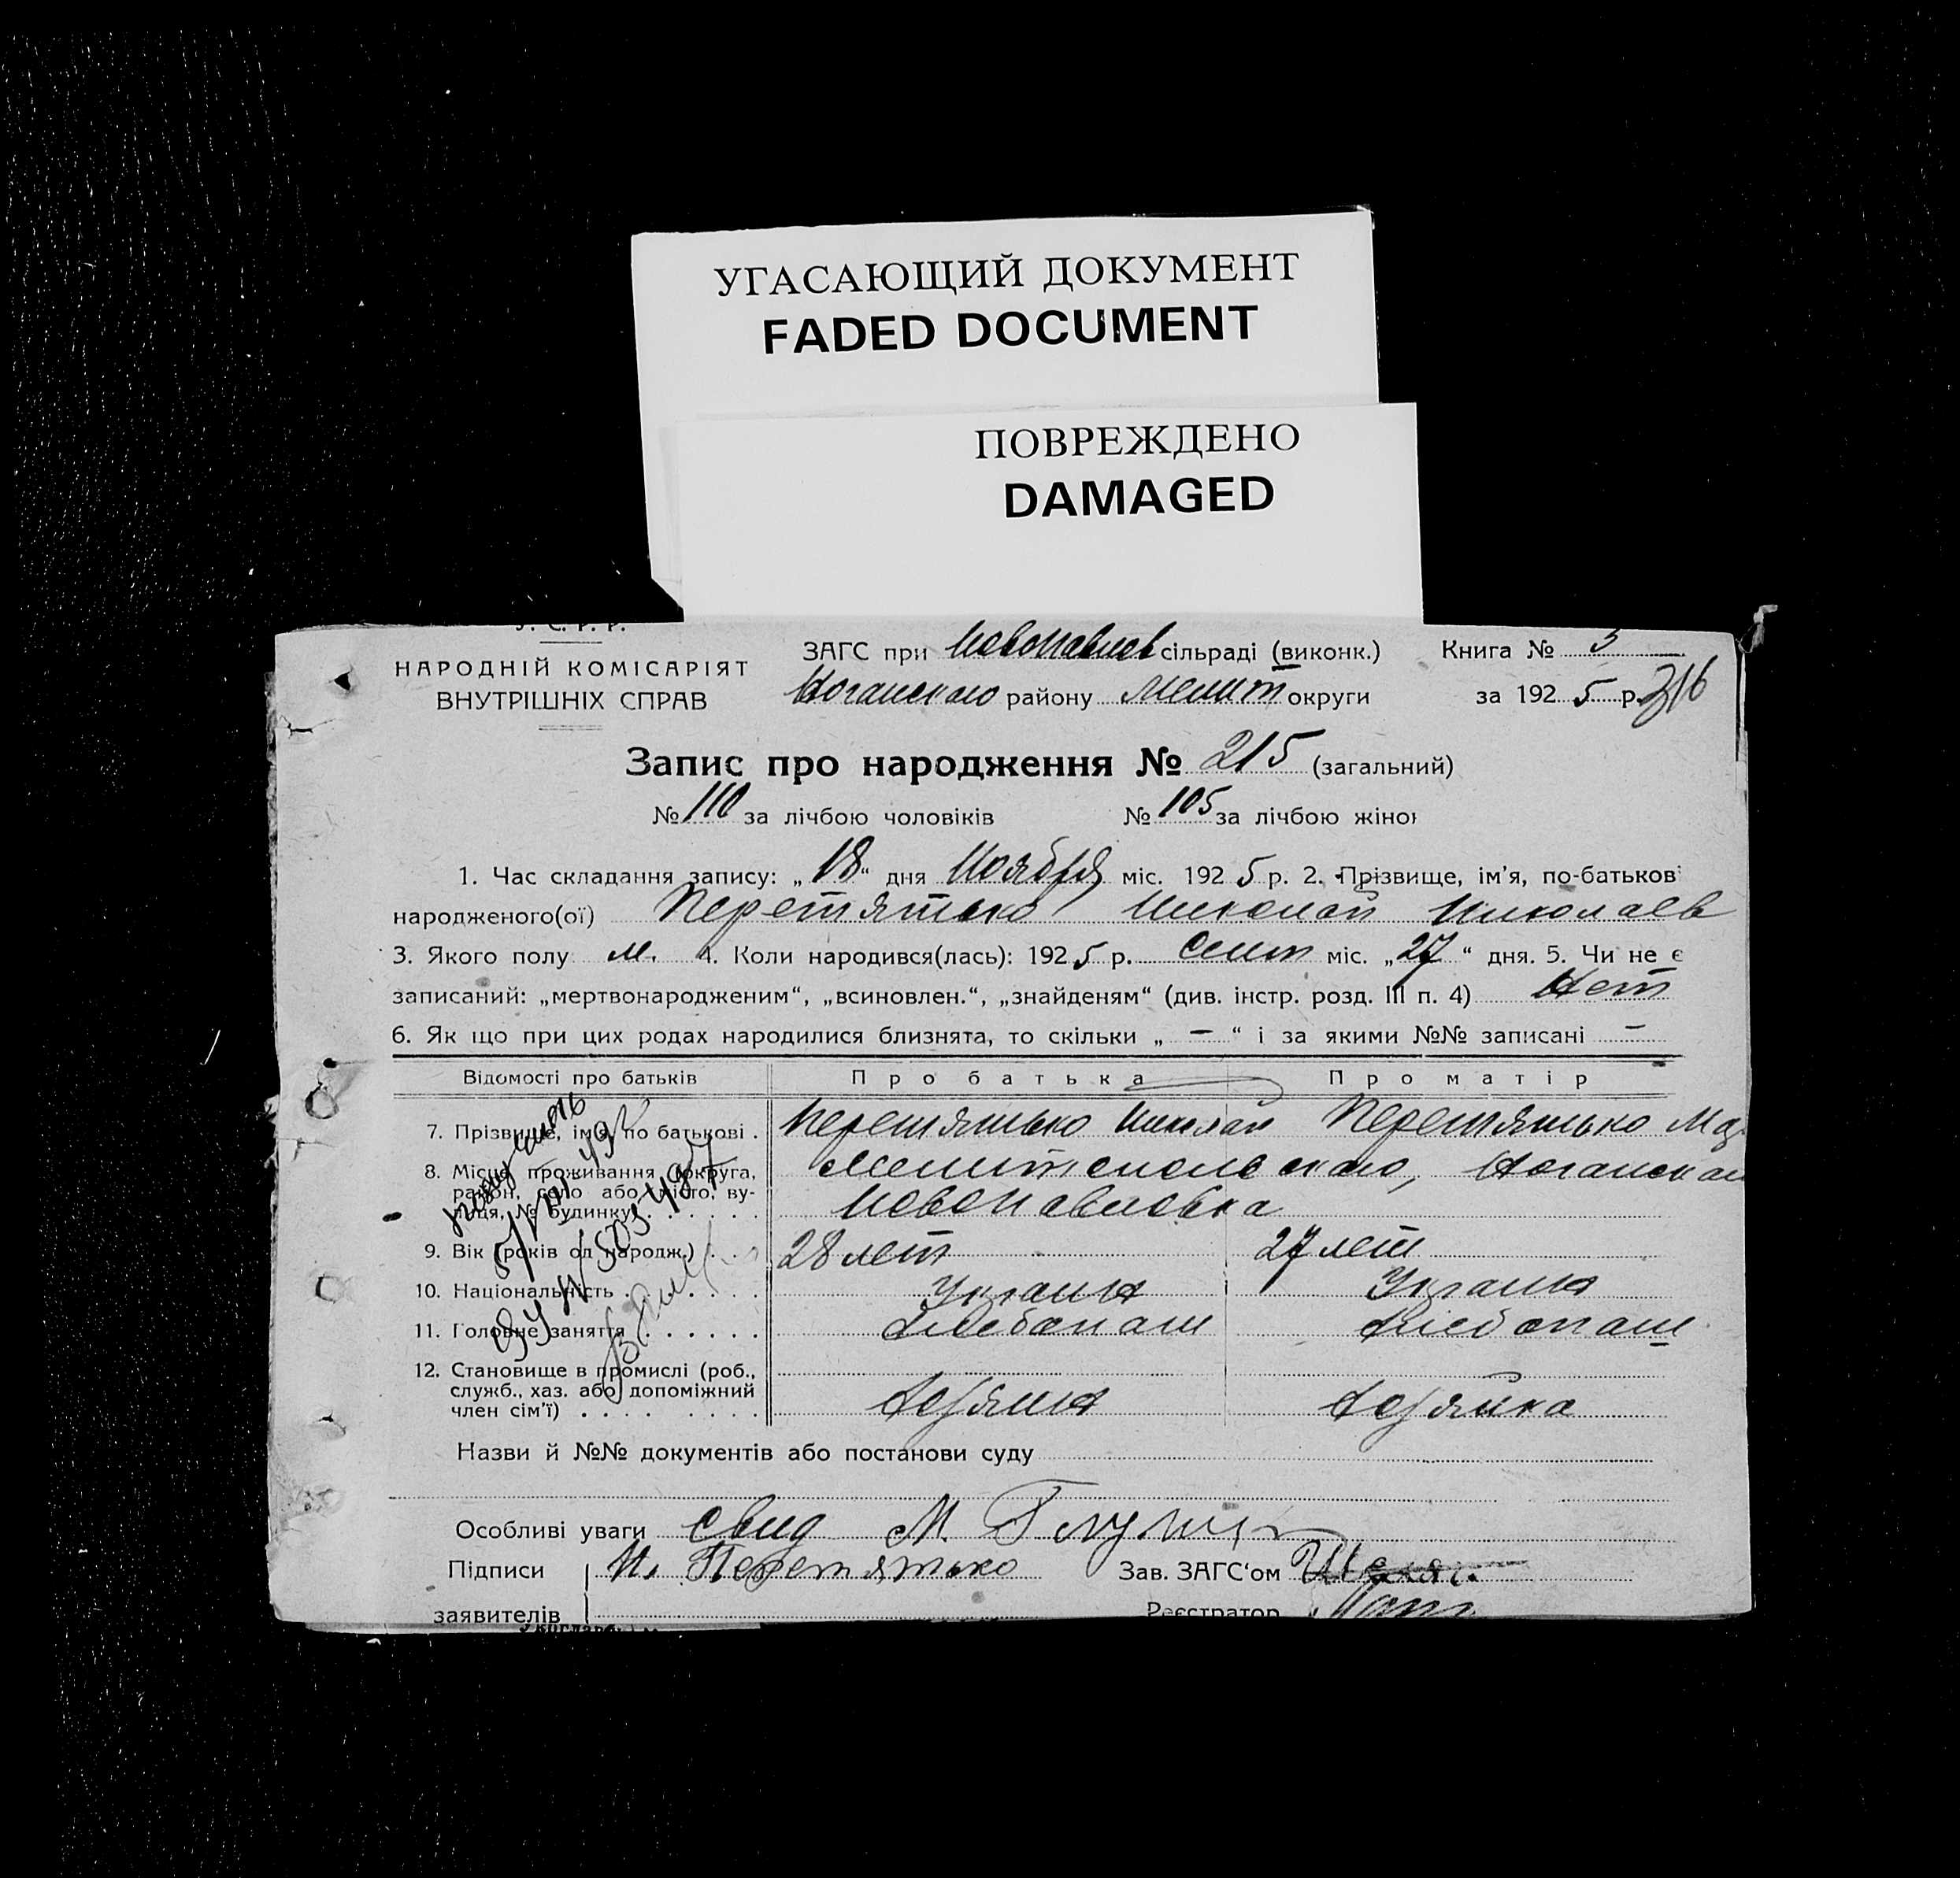 УГАСАЮЩИЙ ДОКУМЕНТ
FADED DOCUMENT
ПОВРЕЖДЕНО
DAMAGED
У. С. Р. Р.
НАРОДНІЙ КОМІСАРІЯТ
ВНУТРІШНІХ СПРАВ
ЗАГС при Новопавлов сільраді (виконк.)
Ногайского району Мелит округи
Книга № 3
за 1925 р.
216
Запис про народження № 215 (загальний)
№ 110 за лічбою чоловіків № 105 за лічбою жіно
1. Час складання запису: „18“ дня Ноября міс. 1925 р. 2. Прізвище, ім’я, по-батьков
народженого(ої) Перетятько Николай Николаев
3. Якого полу м. 4. Коли народився(лась): 1925 р. Сент міс. „27“ дня. 5. Чи не є
записаний: „мертвонародженим“, „всиновлен.“, „знайденям“ (див. інстр. розд. III п. 4) Нет
6. Як що при цих родах народилися близнята, то скільки „ — “ і за якими №№ записані —
Відомості про батьків Про батька Про матір
7. Прізвище, ім’я, по батькові . Перетятько Николай Перетятько
8. Місце проживання (округа, район, село або місто, вулиця, № будинку) . . . . . . Мелитопольского, Ногайскаго
Новопавловка
9. Вік (років од народж.) . . . 28 лет 27 лет
10. Національність . . . . . . . Украин Украин
11. Головне заняття . . . . . . Хлебопаш Хлебопаш
12. Становище в промислі (роб.,
служб., хаз. або допоміжний
член сім’ї) . . . . . . . . Хозяин Хозяйка
Назви й №№ документів або постанови суду
Особливі уваги свид М.
Підписи Н. Перетятько Зав. ЗАГС‘ом
заявителів Реєстратор